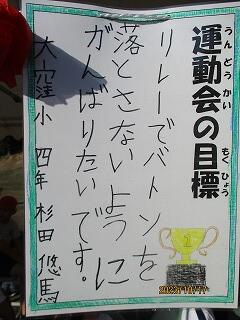 運動会の目標
うんどうかい もくひょう
リレーでバトンを
落とさないように
がんばりたいです。
大窪小 四年 杉田 悠馬
1